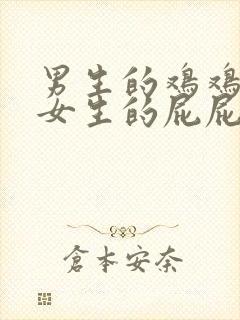 男生的鸡鸡
女生的屁屁
倉本安奈